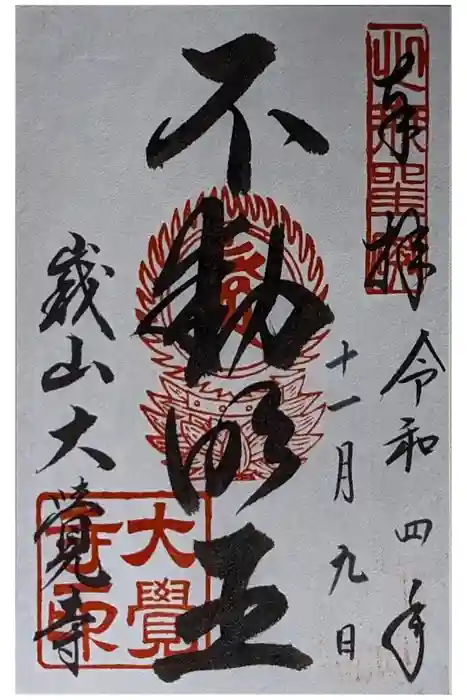 奉拝
令和四年
十一月九日
不動明王
嵯峨山大覺寺
大覺寺印